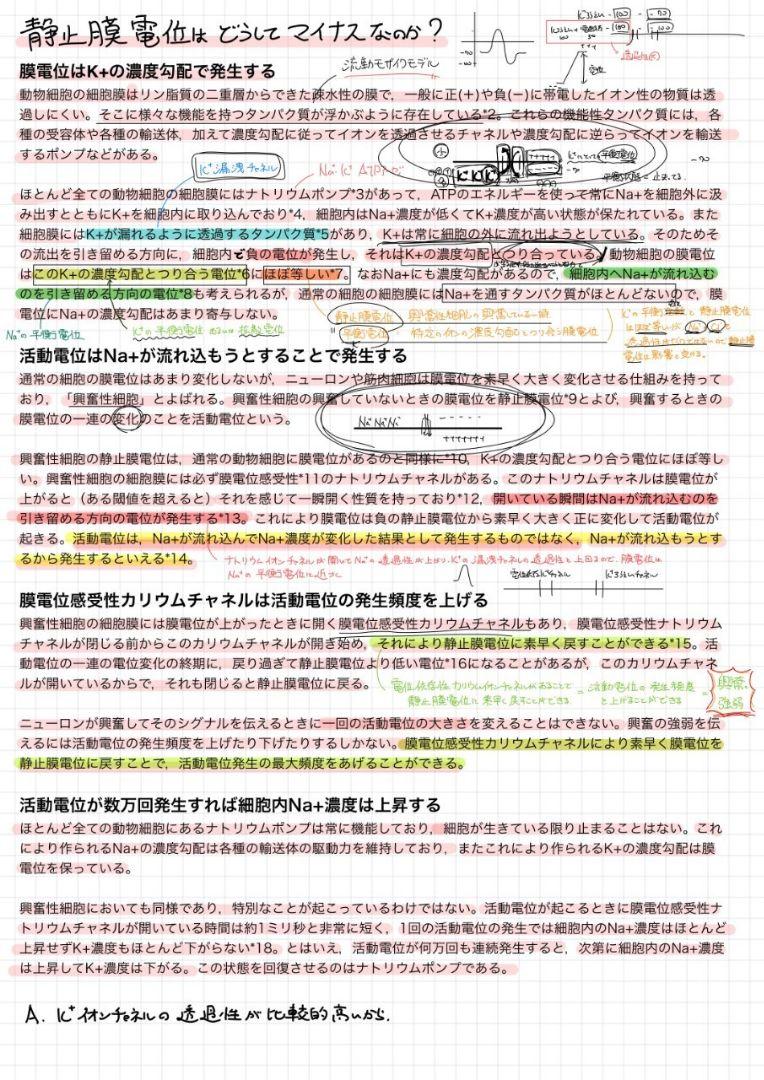 静止膜電位は どうして マイナスなのか？
膜電位はK+の濃度勾配で発生する
流動モザイクモデル
動物細胞の細胞膜はリン脂質の二重層からできた疎水性の膜で，一般に正(+)や負(−)に帯電したイオン性の物質は透
過しにくい。そこに様々な機能を持つタンパク質が浮かぶように存在している*2。これらの機能性タンパク質には，各
種の受容体や各種の輸送体，加えて濃度勾配に従ってイオンを透過させるチャネルや濃度勾配に逆らってイオンを輸送
するポンプなどがある。
K⁺漏洩チャネル
ほとんど全ての動物細胞の細胞膜にはナトリウムポンプ*3があって，ATPのエネルギーを使って常にNa+を細胞外に汲
み出すとともにK+を細胞内に取り込んでおり*4，細胞内はNa+濃度が低くてK+濃度が高い状態が保たれている。また
細胞膜にはK+が漏れるように透過するタンパク質*5があり，K+は常に細胞の外に流れ出ようとしている。そのためそ
の流出を引き留める方向に，細胞内で負の電位が発生し，それはK+の濃度勾配とつり合っている。動物細胞の膜電位
はこのK+の濃度勾配とつり合う電位*6にほぼ等しい*7。なおNa+にも濃度勾配があるので，細胞内へNa+が流れ込む
のを引き留める方向の電位*8も考えられるが，通常の細胞の細胞膜にはNa+を通すタンパク質がほとんどないので，膜
電位にNa+の濃度勾配はあまり寄与しない。
静止膜電位 興奮性細胞の興奮している一時
Na⁺の平衡電位
K⁺の平衡電位 あるいは 拡散電位
平衡電位 特定のイオンの濃度勾配とつり合う膜電位
活動電位はNa+が流れ込もうとすることで発生する
通常の細胞の膜電位はあまり変化しないが，ニューロンや筋肉細胞は膜電位を素早く大きく変化させる仕組みを持って
おり，「興奮性細胞」とよばれる。興奮性細胞の興奮していないときの膜電位を静止膜電位*9とよび，興奮するときの
膜電位の一連の変化のことを活動電位という。
興奮性細胞の静止膜電位は，通常の動物細胞に膜電位があるのと同様に*10，K+の濃度勾配とつり合う電位にほぼ等し
い。興奮性細胞の細胞膜には必ず膜電位感受性*11のナトリウムチャネルがある。このナトリウムチャネルは膜電位が
上がると（ある閾値を超えると）それを感じて一瞬開く性質を持っており*12，開いている瞬間はNa+が流れ込むのを
引き留める方向の電位が発生する*13。これにより膜電位は負の静止膜電位から素早く大きく正に変化して活動電位が
起きる。活動電位は，Na+が流れ込んでNa+濃度が変化した結果として発生するものではなく，Na+が流れ込もうとす
るから発生するといえる*14。
ナトリウムイオンチャネルが開いてNa⁺の透過性が上がり，K⁺の漏洩チャネルの透過性を上回るので，膜電位は
Na⁺の平衡電位に近づく
膜電位感受性カリウムチャネルは活動電位の発生頻度を上げる
興奮性細胞の細胞膜には膜電位が上がったときに開く膜電位感受性カリウムチャネルもあり，膜電位感受性ナトリウム
チャネルが閉じる前からこのカリウムチャネルが開き始め，それにより静止膜電位に素早く戻すことができる*15。活
動電位の一連の電位変化の終期に，戻り過ぎて静止膜電位より低い電位*16になることがあるが，このカリウムチャネ
ルが開いているからで，それも閉じると静止膜電位に戻る。
電位依存性カリウムイオンチャネルがあることで = 活動電位の発生頻度 = 興奮の
静止膜電位に素早く戻すことができる を上げることができる 強弱
ニューロンが興奮してそのシグナルを伝えるときに一回の活動電位の大きさを変えることはできない。興奮の強弱を伝
えるには活動電位の発生頻度を上げたり下げたりするしかない。膜電位感受性カリウムチャネルにより素早く膜電位を
静止膜電位に戻すことで，活動電位発生の最大頻度をあげることができる。
活動電位が数万回発生すれば細胞内Na+濃度は上昇する
ほとんど全ての動物細胞にあるナトリウムポンプは常に機能しており，細胞が生きている限り止まることはない。これ
により作られるNa+の濃度勾配は各種の輸送体の駆動力を維持しており，またこれにより作られるK+の濃度勾配は膜
電位を保っている。
興奮性細胞においても同様であり，特別なことが起こっているわけではない。活動電位が起こるときに膜電位感受性ナ
トリウムチャネルが開いている時間は約1ミリ秒と非常に短く，1回の活動電位の発生では細胞内のNa+濃度はほとんど
上昇せずK+濃度もほとんど下がらない*18。とはいえ，活動電位が何万回も連続発生すると，次第に細胞内のNa+濃度
は上昇してK+濃度は下がる。この状態を回復させるのはナトリウムポンプである。
A. K⁺イオンチャネルの 透過性が 比較的高いから.